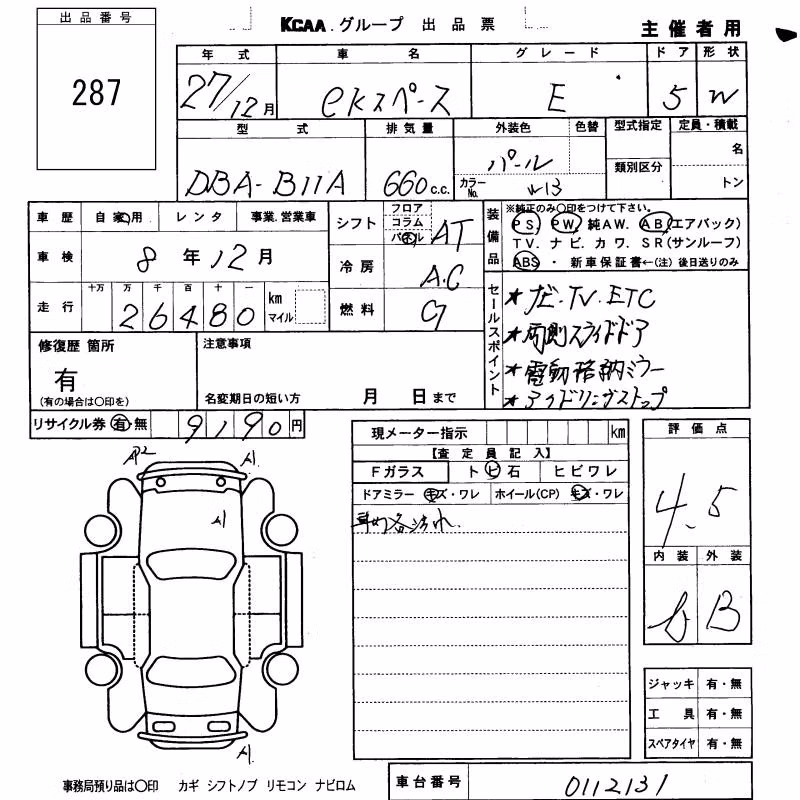 出品番号
287
KCAA グループ 出品票
主催者用
年式 車名 グレード ドア 形状
27/12月 eKスペース E 5 W
型式 排気量 外装色 色替 型式指定 定員・積載
DBA-B11A 660c.c. パール 名
カラーNo. W13 類別区分 トン
車歴 自家用 レンタ 事業.営業車
シフト フロア コラム パネル AT
車検 8年12月
冷房 A.C
走行 十万 万 千 百 十 一
26480 km マイル
燃料 G
装備品 ※純正のみ〇印をつけて下さい。
PS. PW. 純AW. AB(エアバック)
TV. ナビ. カワ. SR(サンルーフ)
ABS ・ 新車保証書←(注)後日送りのみ
セールスポイント
★ナビ.TV.ETC
★両側スライドドア
★電動格納ミラー
★アイドリングストップ
修復歴 箇所
有
(有の場合は〇印を)
注意事項
名変期日の短い方 月 日まで
リサイクル券 有 無 9190円
現メーター指示 km
【査定員記入】
Fガラス トビ石 ヒビワレ
ドアミラー キズ・ワレ ホイール(CP) キズ・ワレ
評価点
4.5
内装 外装
B
AP2 A1.
A1
A1.
ジャッキ 有・無
工具 有・無
スペアタイヤ 有・無
事務局預り品は〇印 カギ シフトノブ リモコン ナビロム
車台番号 0112131